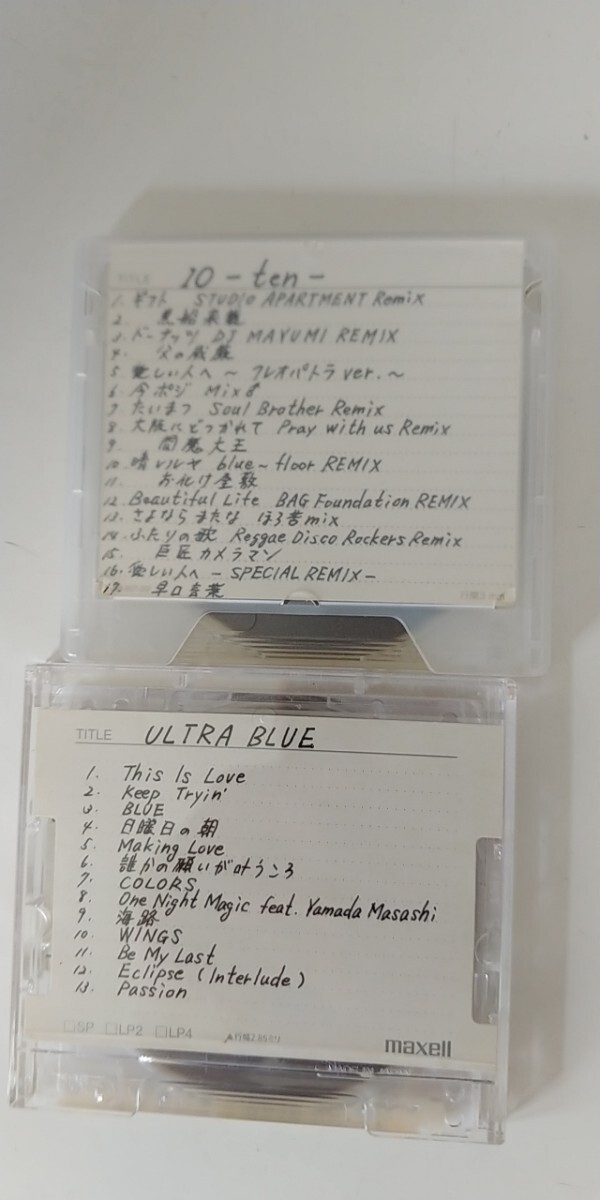 TITLE 10 - ten -
1. ギフト STUDIO APARTMENT Remix
2. 黒船来襲
3. ドーナッツ DJ MAYUMI REMIX
4. 父の威厳
5. 愛しい人へ 〜 クレオパトラ ver. 〜
6. 今ポジ Mix♂
7. たいまつ Soul Brother Remix
8. 大阪にどつかれて Pray with us Remix
9. 閻魔大王
10. 晴レルヤ blue-floor REMIX
11. お化け屋敷
12. Beautiful Life BAG Foundation REMIX
13. さよなら またな ほろ苦mix
14. ふたりの歌 Reggae Disco Rockers Remix
15. 巨匠カメラマン
16. 愛しい人へ - SPECIAL REMIX -
17. 早口言葉
TITLE ULTRA BLUE
1. This Is Love
2. Keep Tryin'
3. BLUE
4. 日曜日の朝
5. Making Love
6. 誰かの願いが叶うころ
7. COLORS
8. One Night Magic feat. Yamada Masashi
9. 海路
10. WINGS
11. Be My Last
12. Eclipse (Interlude)
13. Passion
□SP □LP2 □LP4
maxell